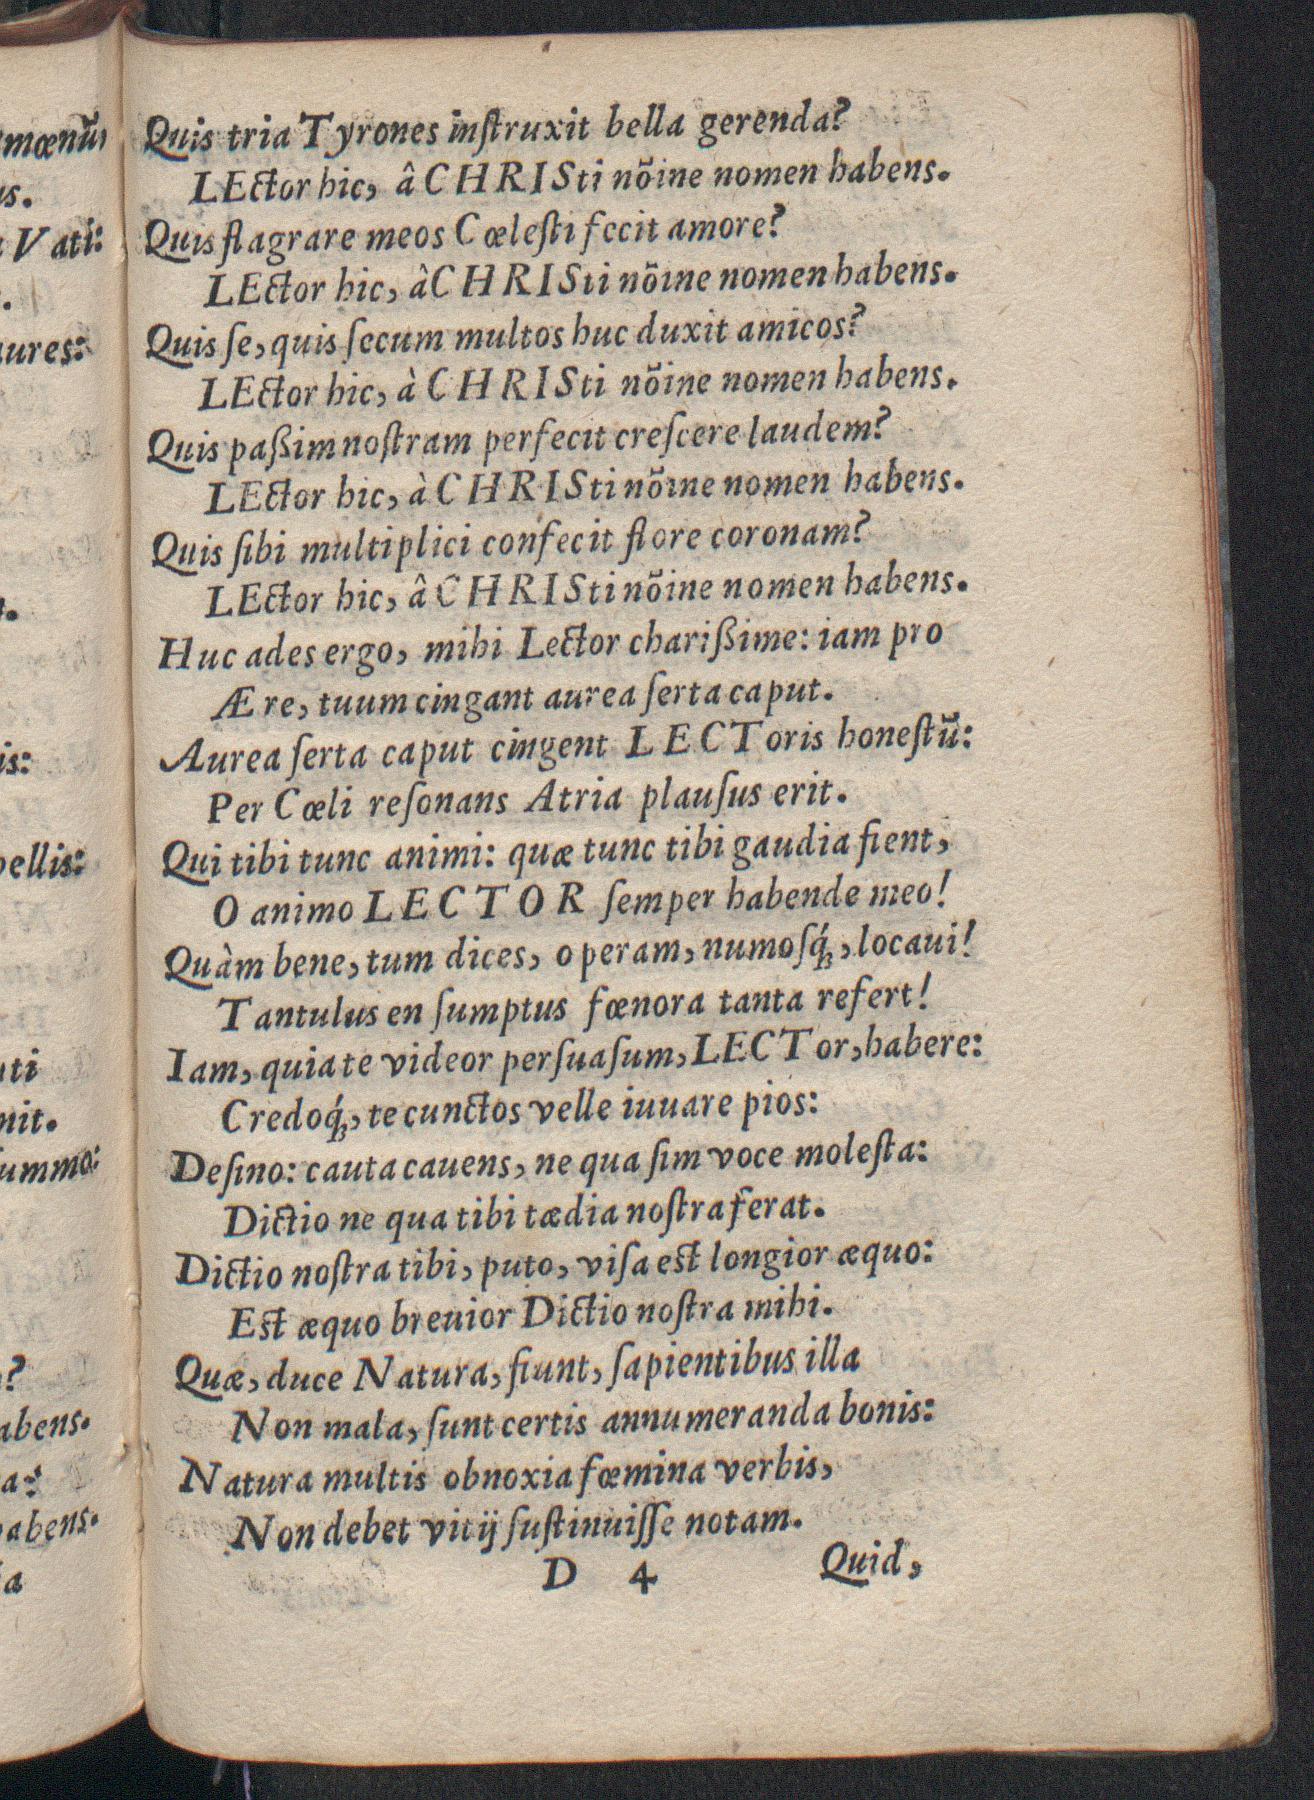 Quis tria Tyrones inſtruxit bella gerenda?
LEctor hic, â CHRISti nõine nomen habens.
Quis flagrare meos Cœleſti fecit amore?
LEctor hic, â CHRISti nõine nomen habens.
Quis ſe, quis ſecum multos huc duxit amicos?
LEctor hic, à CHRISti nõine nomen habens.
Quis paßim noſtram perfecit creſcere laudem?
LEctor hic, à CHRISti nõine nomen habens.
Quis ſibi multiplici confecit flore coronam?
LEctor hic, â CHRISti nõine nomen habens.
Huc ades ergo, mihi Lector charißime: iam pro
Ære, tuum cingant aurea ſerta caput.
Aurea ſerta caput cingent LECToris honeſtũ:
Per Cœli reſonans Atria plauſus erit.
Qui tibi tunc animi: quæ tunc tibi gaudia fient,
O animo LECTOR ſemper habende meo!
Quàm bene, tum dices, operam, numoſq́;, locaui!
Tantulus en ſumptus fœnora tanta refert!
Iam, quia te videor perſuaſum, LECTor, habere:
Credoq́;, te cunctos velle iuuare pios:
Deſino: cauta cauens, ne qua ſim voce moleſta:
Dictio ne qua tibi tædia noſtra ferat.
Dictio noſtra tibi, puto, viſa est longior æquo:
Est æquo breuior Dictio noſtra mihi.
Quæ, duce Natura, fiunt, ſapientibus illa
Non mala, ſunt certis annumeranda bonis:
Natura multis obnoxia fœmina verbis,
Non debet vitij ſuſtinuiſſe notam.
D 4 Quid,